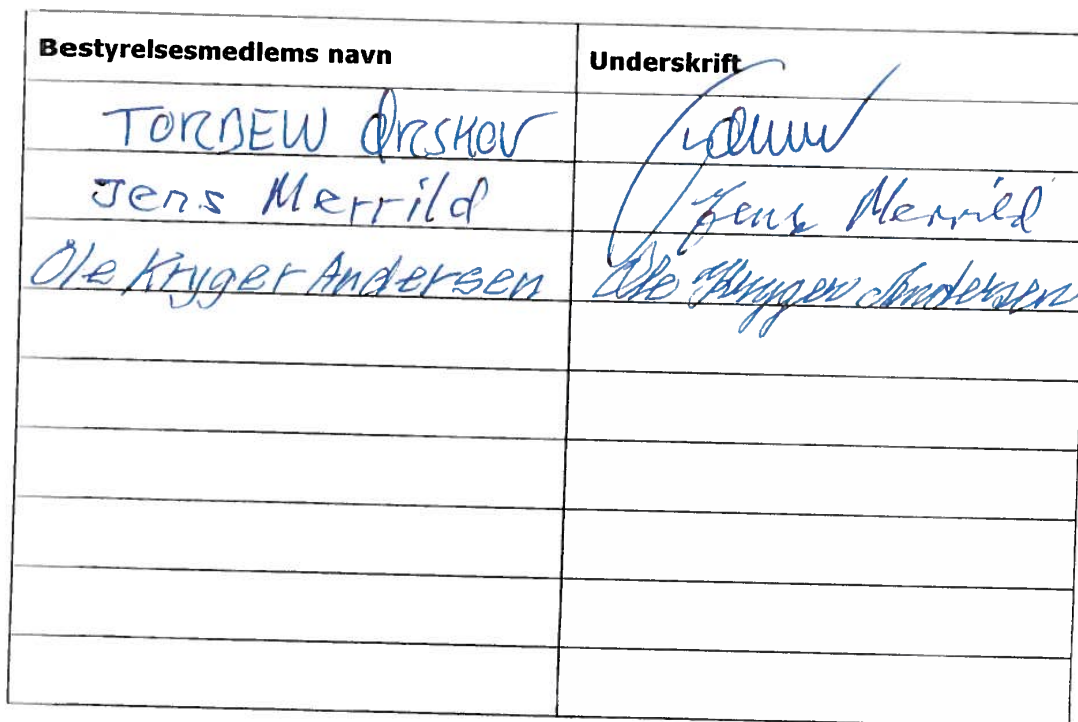 Bestyrelsesmedlems navn Underskrift
TORBEN ØRSKOV
Jens Merrild Jens Merrild
Ole Kryger Andersen Ole Kryger Andersen